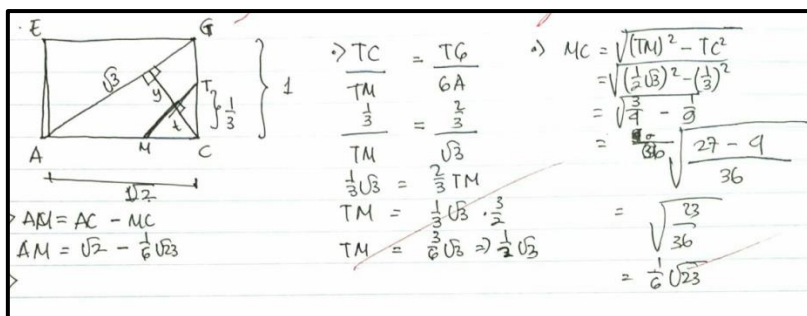 E G
√3
T
y
t
1/3
} 1
A M C
1√2
> AM = AC - MC
AM = √2 - 1/6 √23
>
•> TC/TM = TG/GA
1/3 / TM = 2/3 / √3
1/3 √3 = 2/3 TM
TM = 1/3 √3 · 3/2
TM = 3/6 √3 => 1/2 √3
•> MC = √((TM)² - TC²)
= √((1/2 √3)² - (1/3)²)
= √(3/4 - 1/9)
= √((27 - 9)/36)
= √(23/36)
= 1/6 √23